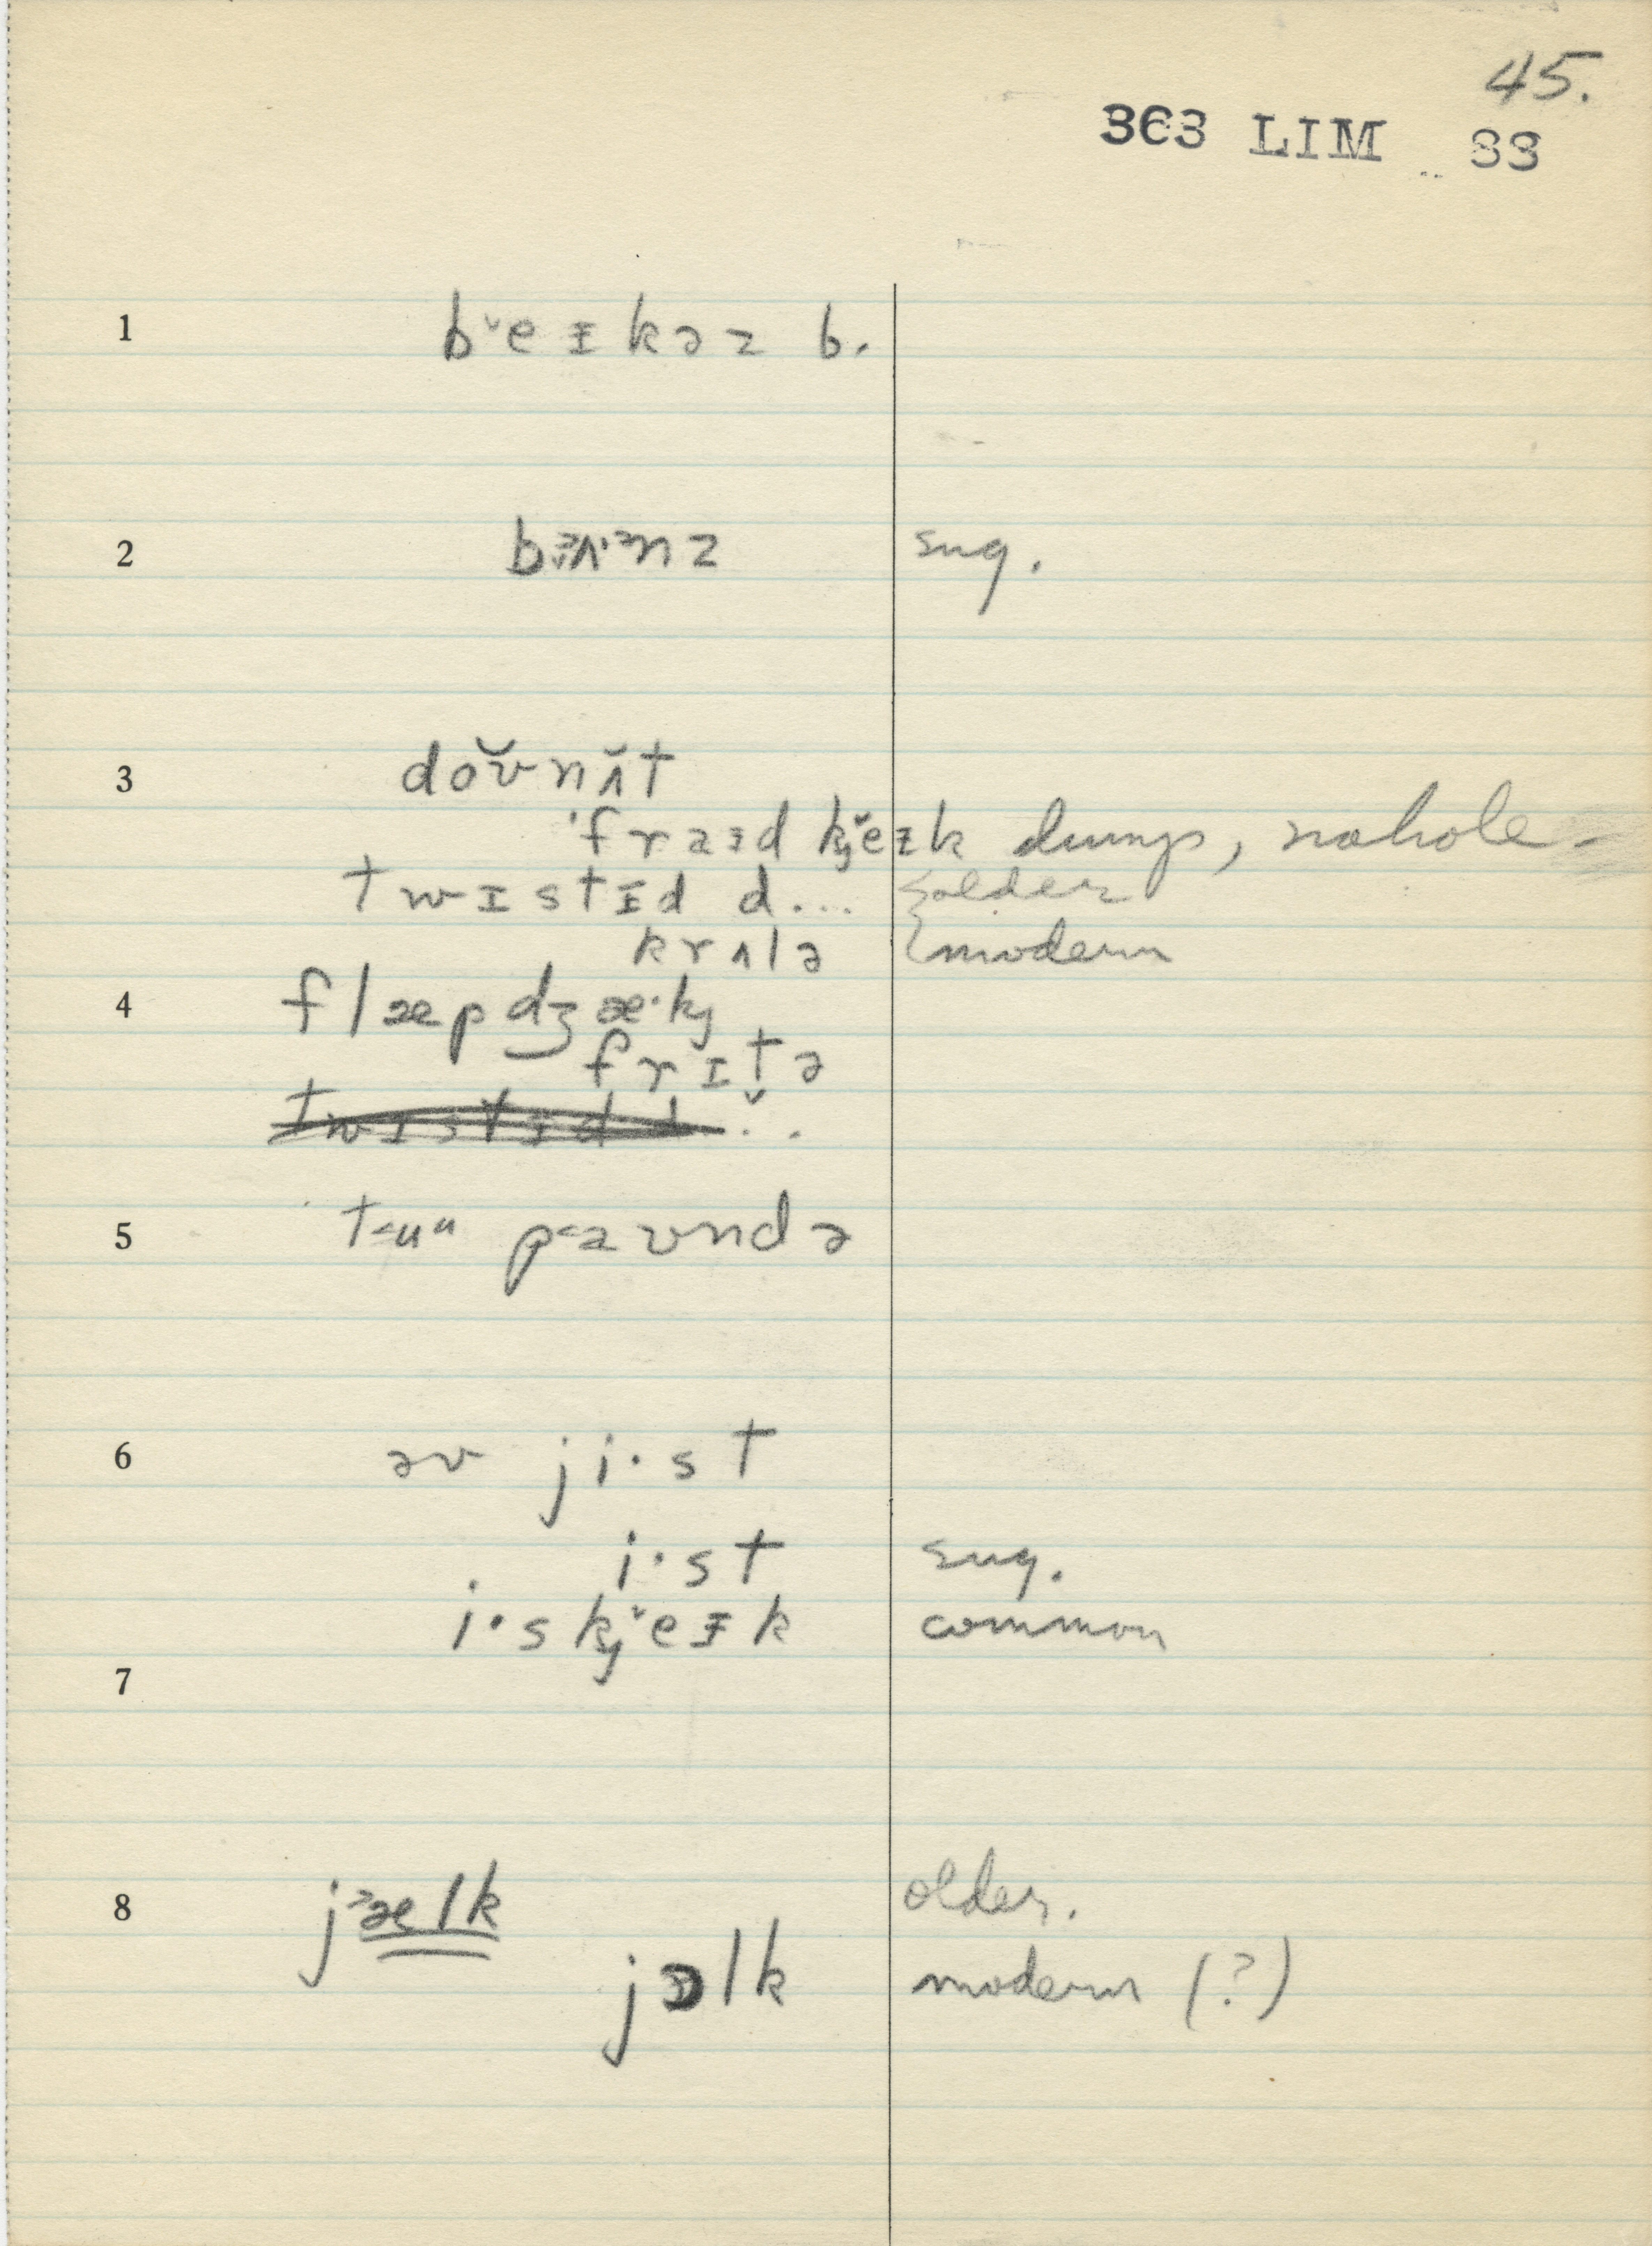 45.
363 LIM 33
1 b˅eɪkəz b.
2 nz sug.
3 doʊ̆nʌ̆t
ˈfraɪd k̡˅eɪk dump, no hole -
twɪstɪd d... older
krʌlə modern
4 flæpdʒæ·k̡
frɪt̬ə
twɪstɪd d...
5 t<uᵘ p<aʊndə
6 əv ji·st
i·st sug.
i·sk̡˅eɪk common
7
8 j˃ælk older.
jɒlk modern (?)